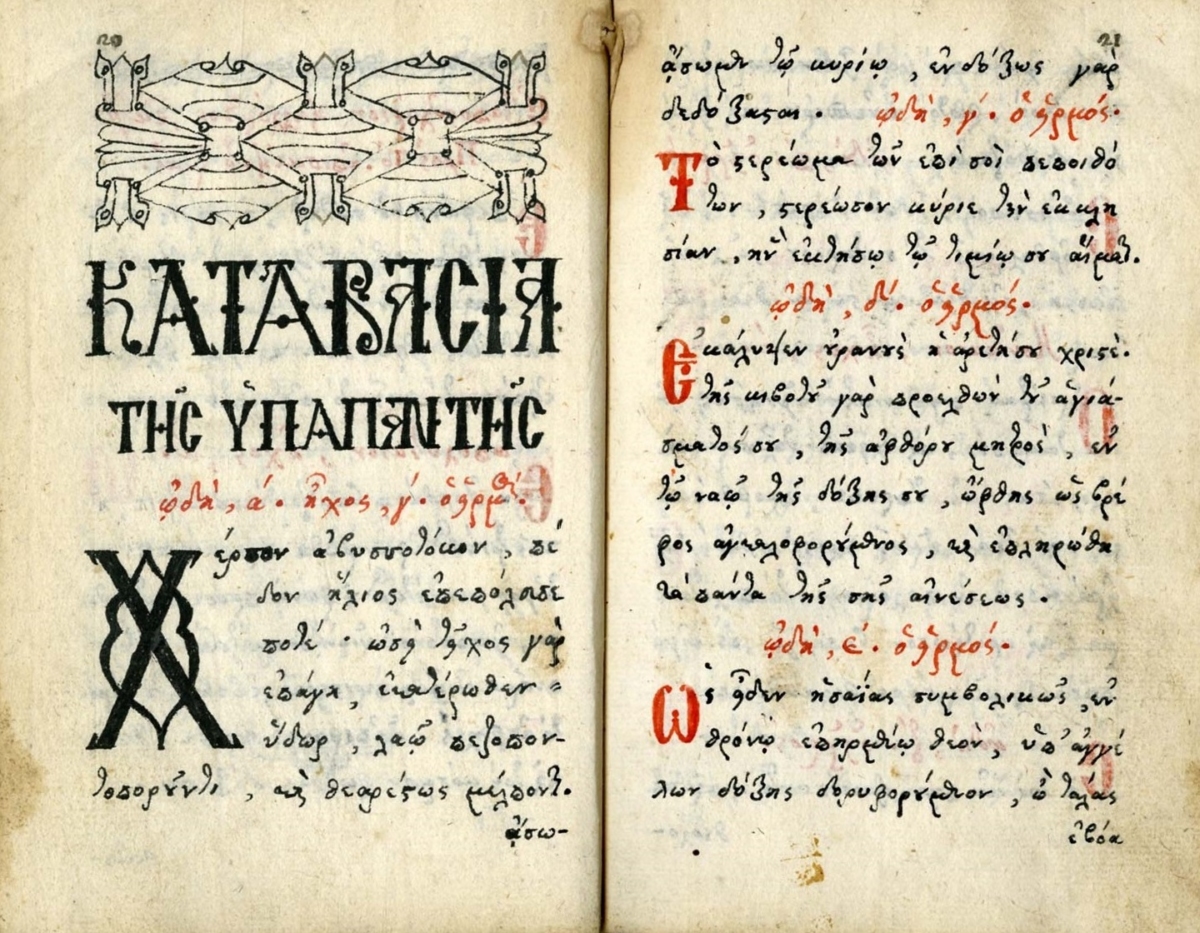 20
ΚΑΤΑΒΑΣΙΑ
ΤΗ͂Σ ὙΠΑΠΑΝΤΗ͂Σ
ᾠδὴ, ά. ἦχος, γ'. ὁ εἱρμὸς.
Χέρσον ἀβυσσοτόκον, πέ
δον ἥλιος ἐπεπόλευσέ
ποτέ. ὡσεὶ τεῖχος γὰρ
ἐπάγη, ἑκατέρωθεν
ὕδωρ, λαῷ πεζοπον-
τοποροῦντι, καὶ θεαρέστως μέλποντι.
ᾄσω-
21
ᾄσωμεν τῷ κυρίῳ, ἐνδόξως γὰρ
δεδόξασται. ᾠδὴ, γ'. ὁ εἱρμός.
Τὸ στερέωμα τῶν ἐπὶ σοὶ πεποιθό
των, στερέωσον κύριε τὴν ἐκκλη
σίαν, ἣν ἐκτήσω τῷ τιμίῳ σου αἵματι.
ᾠδὴ, δ'. ὁ εἱρμός.
Ἐκάλυψεν οὐρανοὺς ἡ ἀρετήσου χριστέ.
τῆς κιβωτοῦ γὰρ προελθὼν τοῦ ἁγιά-
σματός σου, τῆς ἀφθόρου μητρὸς, ἐν
τῷ ναῷ τῆς δόξης σου, ὤφθης ὡς βρέ
φος ἀγκαλοφορούμενος, καὶ ἐπληρώθη
τὰ πάντα τῆς σῆς αἰνέσεως.
ᾠδὴ, ε. ὁ εἱρμός.
Ὡς εἶδεν ἡσαΐας συμβολικῶς, ἐν
θρόνῳ ἐπηρμένῳ θεὸν, ὑπ' ἀγγέ
λων δόξης δορυφορούμενον, ὢ τάλας
ἐβόα